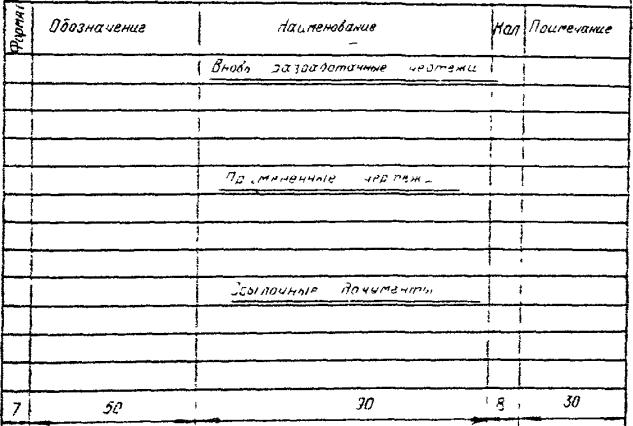 Формат Обозначение Наименование Кол Примечание
Вновь разработанные чертежи
Примененные чертежи
Ссылочные документы
7 50 90 8 30